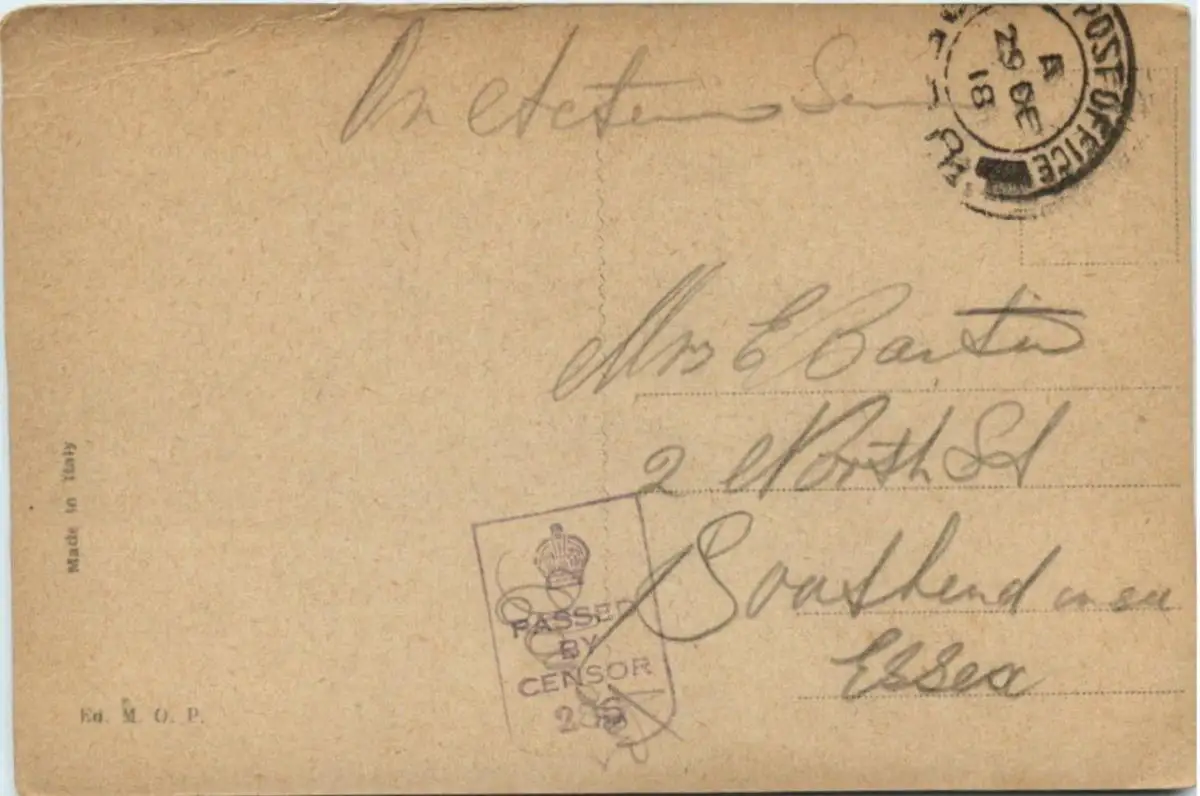 On Active
POST OFFICE
A
29 DE
18
Mrs E
2 North St
Southend on sea
Essex
PASSED
BY
CENSOR
Made in Italy
Ed. M. O. P.